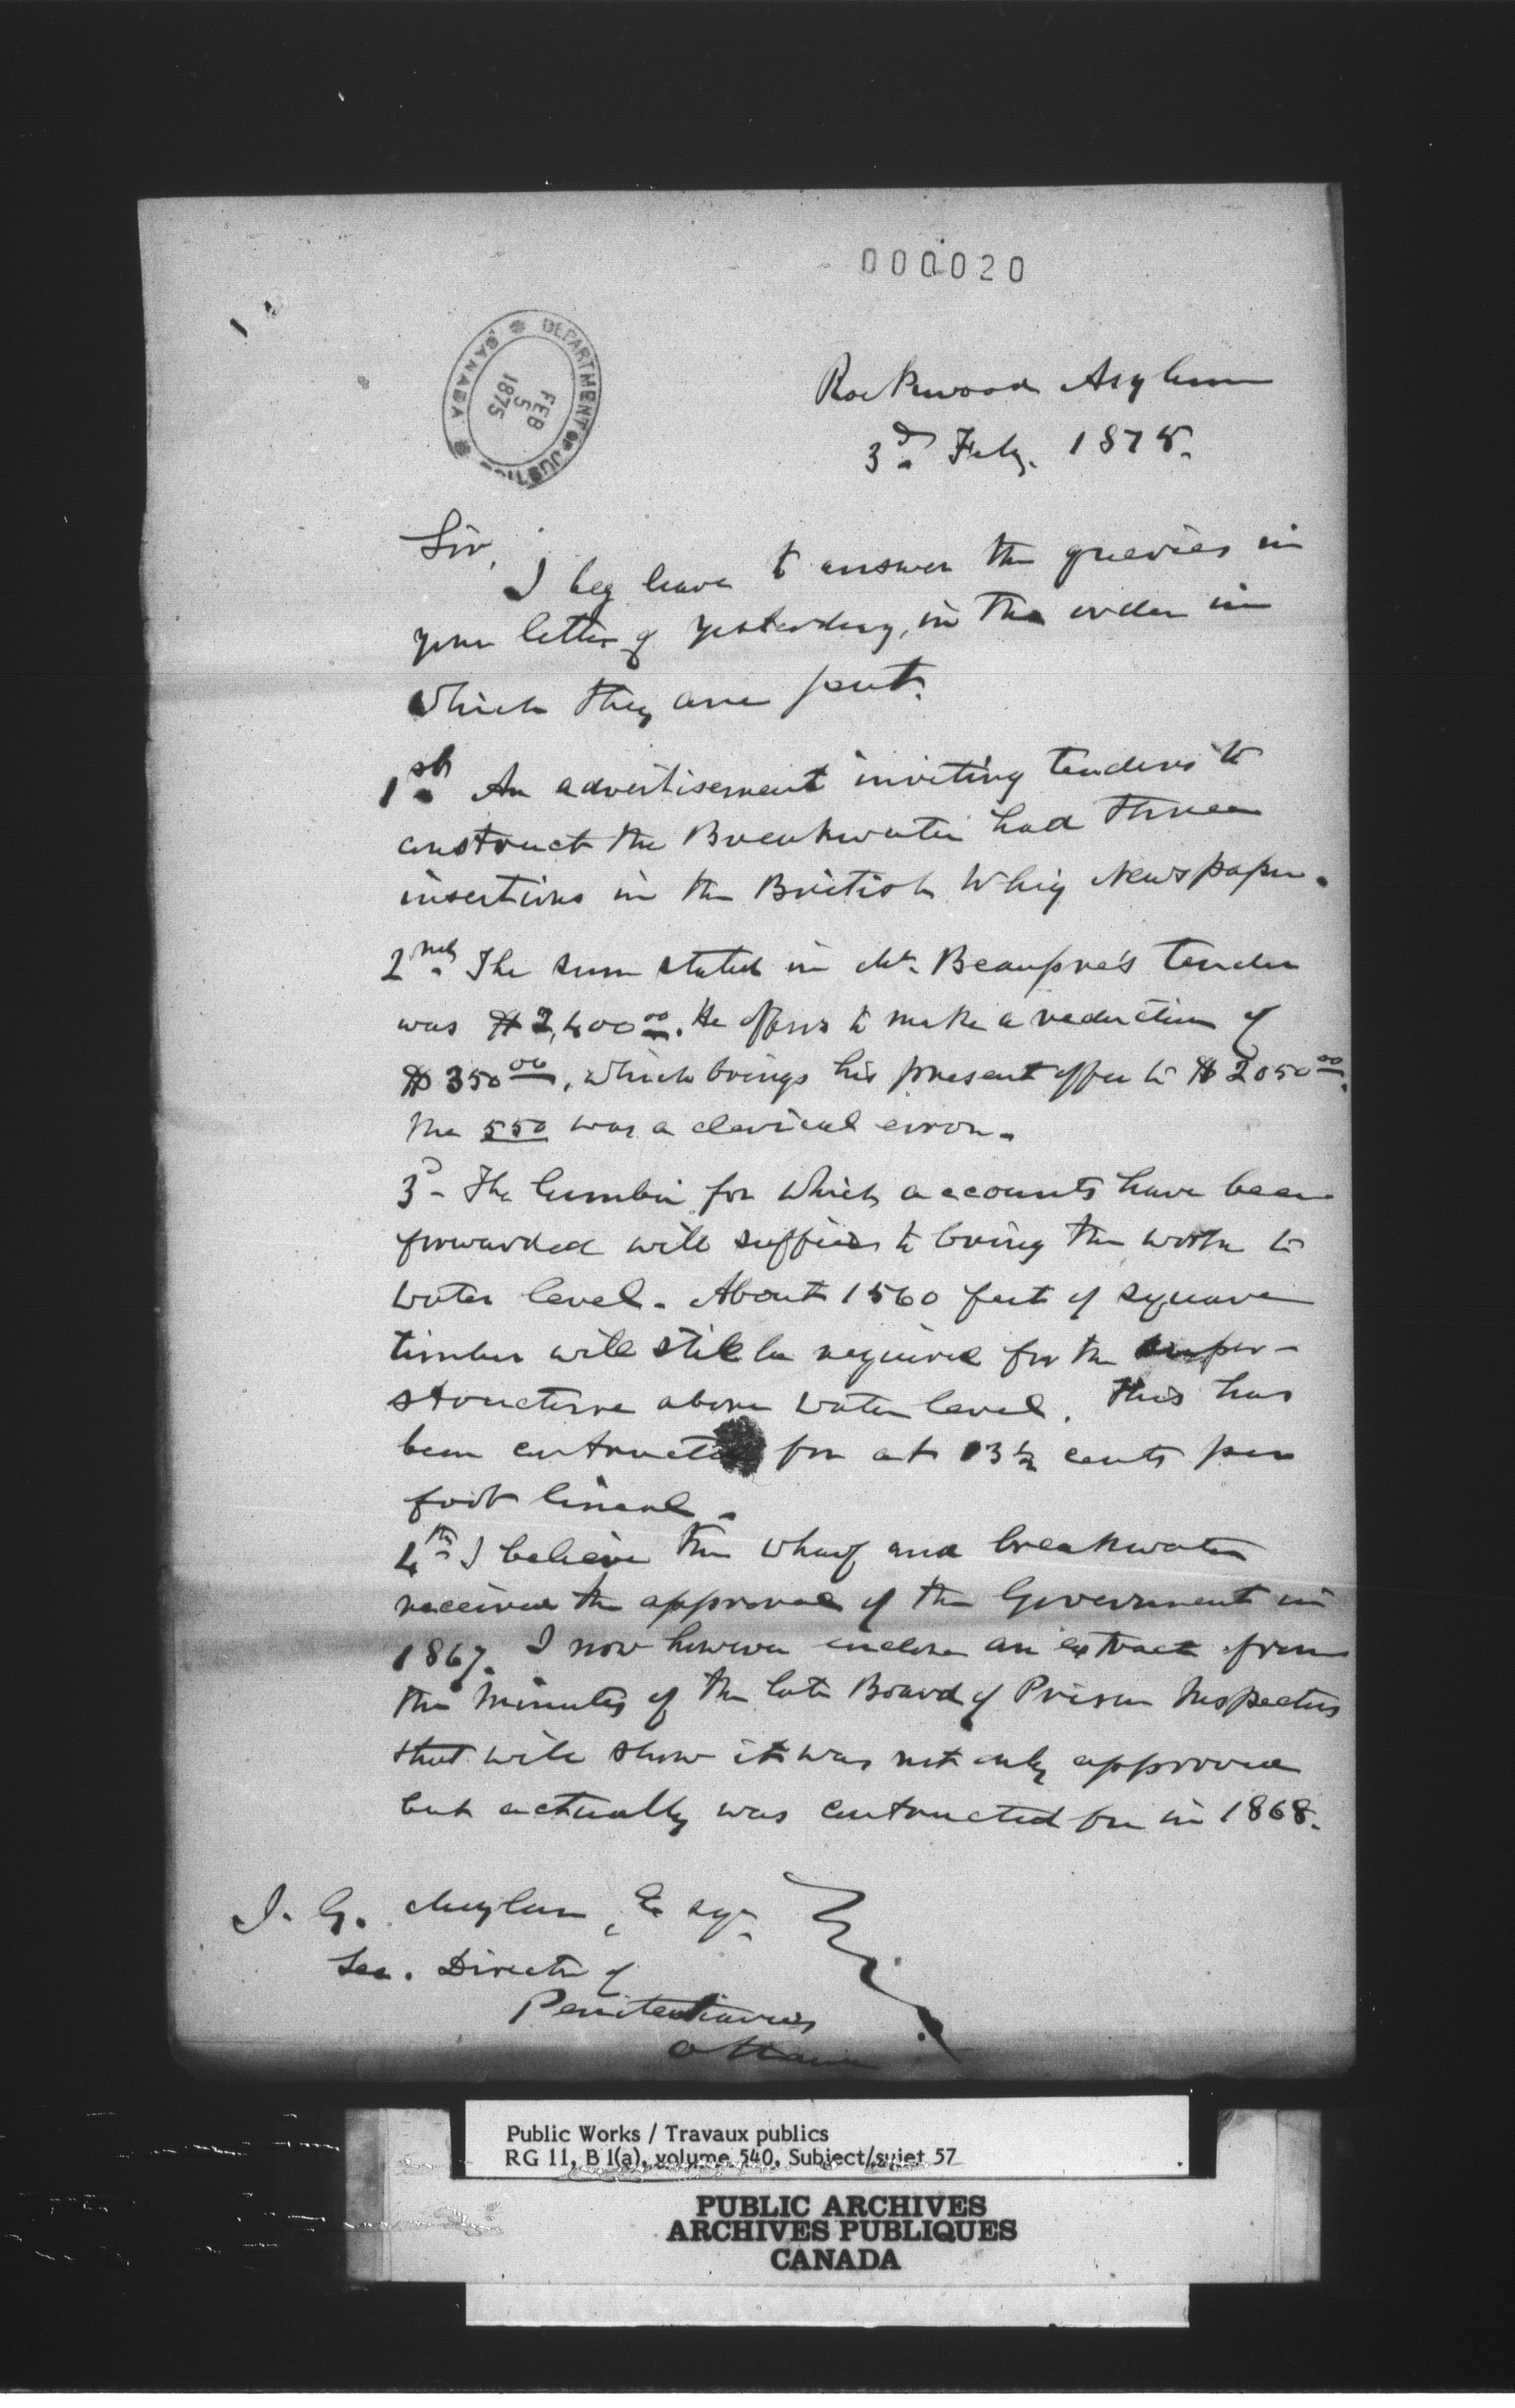 000020
DEPARTMENT OF JUSTICE
CANADA
FEB
5
1875
Rockwood Asylum
3d. Feby. 1875.
Sir,
I beg leave to answer the queries in
your letter of yesterday, in the order in
which they are put.
1st. An advertisement inviting tenders to
construct the Breakwater had three
insertions in the British Whig Newspaper.
2nd. The sum stated in Mr. Beaupre's tender
was $2,400 00. He offers to make a reduction of
$350 00, which brings his present offer to $2050 00.
The 550 was a clerical error.
3d - The lumber for which accounts have been
forwarded will suffice to bring the work to
water level. About 1560 feet of square
timber will still be required for the super-
structure above water level. This has
been contracted for at 13½ cents per
foot lineal.
4th. I believe the wharf and breakwater
received the approval of the Government in
1867. I now however enclose an extract from
the Minutes of the late Board of Prison Inspectors
that will show it was not only approved
but actually was contracted for in 1868.
J. G. Moylan, Esqr.
Sec. Director of
Penitentiaries
Ottawa
Public Works / Travaux publics
RG 11, B 1(a), volume 540, Subject/sujet 57
PUBLIC ARCHIVES
ARCHIVES PUBLIQUES
CANADA